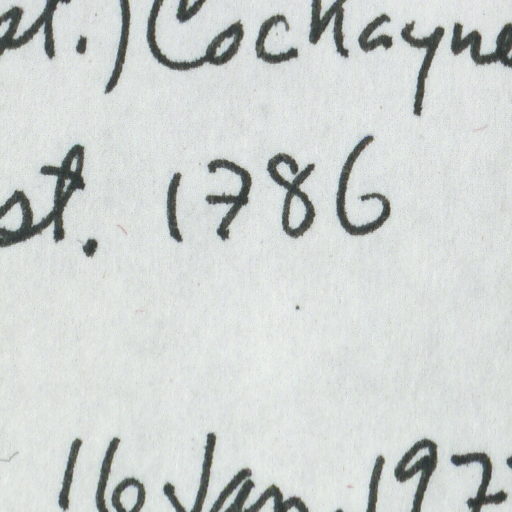 st.) Cockayne
st. 1786
16 Jan. 197